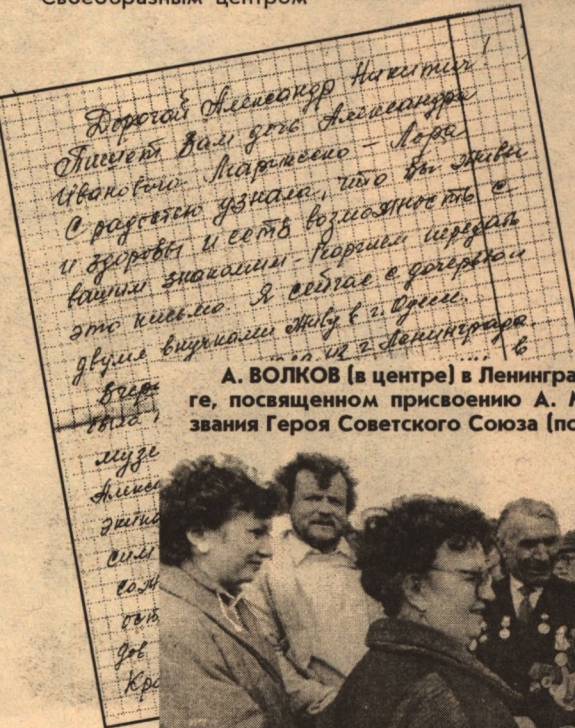 Своеобразным центром
Дорогой Александр Никитич!
Пишет Вам дочь Александра
Ивановича Маринеско – Лора
С радостью узнала, что Вы живы
и здоровы и есть возможность с
вашим знакомым - Георгием передать
это письмо. Я сейчас с дочерью и
двумя внучками живу в г.
из г. Ленинграда.
Вчера
в
была
музе
Алекса
экипа
сим
сож
ост
дов
Кро
А. ВОЛКОВ (в центре) в Ленингра
ге, посвященном присвоению А. М
звания Героя Советского Союза (по